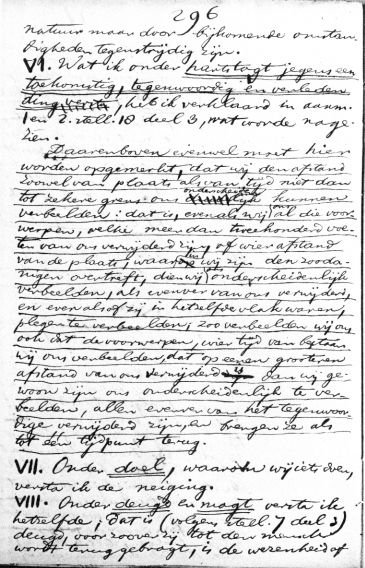 296
natuur maar door bijkomende omstan-
digheden tegenstrijdig zijn.
VI. Wat ik onder hartstogt jegens een
toekomstig, tegenwoordig en verleden
ding, heb ik verklaard in aanm.
1 en 2. stell. 18 deel 3, wat worde nage-
zien.
Daarenboven evenwel moet hier
worden opgemerkt, dat wij den afstand
zoowel van plaats als van tijd niet dan
tot zekere grens ons onderscheidenlijk kunnen
verbeelden: dat is, evenals wij al die voor-
werpen, welke meer dan tweehonderd voe-
ten van ons verwijderd zijn, of wier afstand
van de plaats, waar wij zijn den zooda-
nigen overtreft, dien wij ons onderscheidenlijk
verbeelden, als evenver van ons verwijderd,
en even alsof zij in hetzelfde vlak waren,
plegen te verbeelden; zoo verbeelden wij ons
ook dat de voorwerpen, wier tijd van bestaan
wij ons verbeelden, dat op eenen grooteren
afstand van ons verwijderd is dan wij ge-
woon zijn ons onderscheidenlijk te ver-
beelden, allen evenver van het tegenwoor-
dige verwijderd zijn, en brengen ze als
tot één tijdpunt terug.
VII. Onder doel, waarom wij iets doen,
versta ik de neiging.
VIII. Onder deugd en magt versta ik
hetzelfde; dat is (volgens stell. 7 deel 3)
deugd, voor zoover zij tot den mensch
wordt teruggebragt, is de wezenheid of